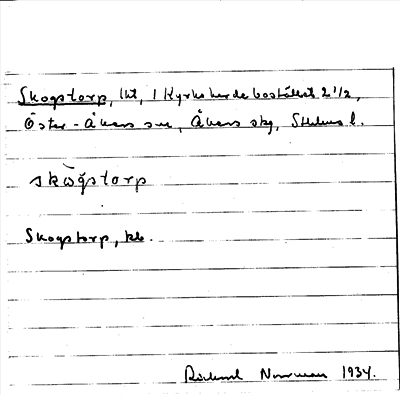 Skogstorp, lht, 1 Kyrkoherdebostället 2 1/2,
Öster-Åkers sn, Åkers skg, Sthlms l.
skòg̀storp
Skogstorp, kb.
Rickard Norrman 1934.